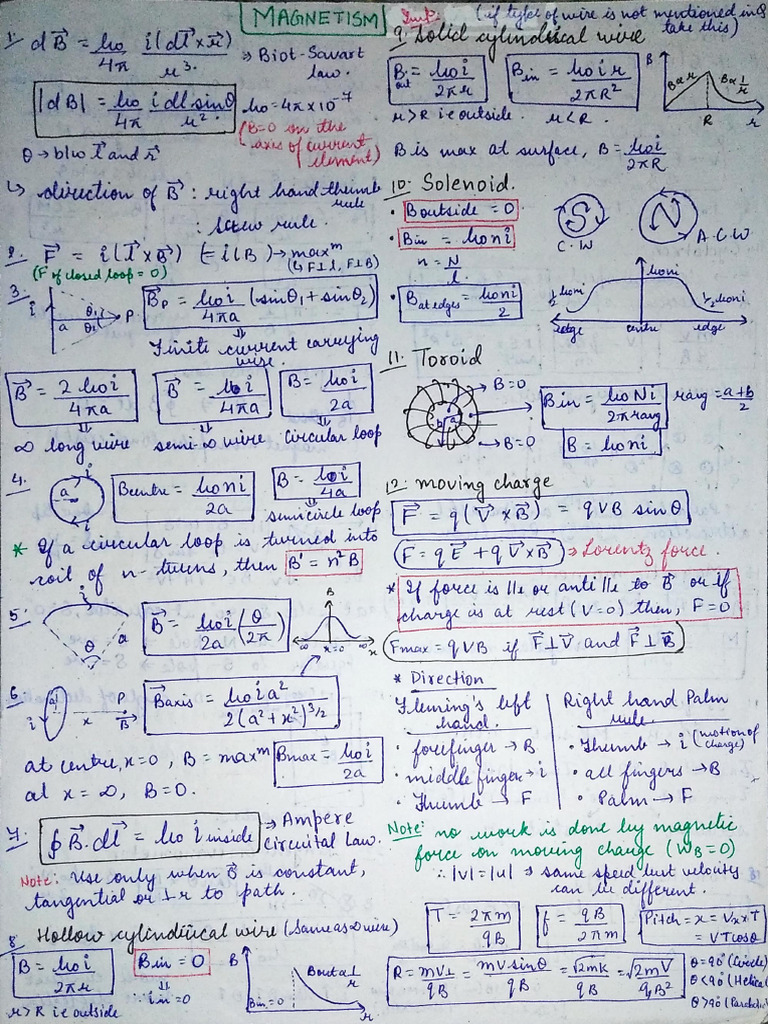 MAGNETISM
1. dB⃗ = μ₀/4π i(dl⃗ × r⃗)/r³ ⇒ Biot-Savart law.
|dB| = μ₀/4π i dl sinθ/r² μ₀ = 4π × 10⁻⁷
(B=0 on the axis of current element)
θ → b/w l⃗ and r⃗
↳ direction of B⃗ : right hand thumb rule
: screw rule.
2. F⃗ = i(l⃗ × B⃗) (= ilB) → maxᵐ
(F of closed loop = 0) (↳ F⊥l, F⊥B)
3. i a θ₁ θ₂ P
B⃗p = μ₀i/4πa (sinθ₁ + sinθ₂)
⇓
Finite current carrying wire.
B⃗ = 2μ₀i/4πa B⃗ = μ₀i/4πa B = μ₀i/2a
⇓ ⇓ ⇓
∞ long wire semi ∞ wire circular loop
4. a i i Bcentre = μ₀ni/2a B = μ₀i/4a
⇓
semicircle loop
* If a circular loop is turned into
coil of n-turns, then B' = n²B
5. i θ a B⃗ = μ₀i/2a (θ/2π)
B ∞ x=0 ∞ x
6. a i x P B⃗ B⃗axis = μ₀ia²/2(a²+x²)^3/2
at centre, x=0, B = maxᵐ Bmax = μ₀i/2a
at x = ∞, B=0.
7. ∮B⃗.dl⃗ = μ₀ i inside → Ampere Circuital Law.
Note: Use only when B⃗ is constant,
tangential or ⊥r to path.
8. Hollow cylindrical wire (Same as ∞ wire)
B = μ₀i/2πr Bin = 0
⇓
∵ iin = 0
r > R ie outside
B Bin = 0 Bout α 1/r r
Imp: (if type of wire is not mentioned in Q take this)
9. Solid cylindrical wire
Bout = μ₀i/2πr Bin = μ₀ir/2πR²
r > R ie outside. r < R.
B Bαr Bα1/r R r
B is max at surface, B = μ₀i/2πR
10. Solenoid.
• Boutside = 0
• Bin = μ₀ni
n = N/l
S C.W N A.C.W
• Bat edges = μ₀ni/2
½μ₀ni μ₀ni ½μ₀ni
edge centre edge
11. Toroid
B=0
b a
B=0
Bin = μ₀Ni/2πravg ravg = a+b/2
B = μ₀ni
12. moving charge
F⃗ = q(V⃗ × B⃗) = qVB sinθ
F = qE⃗ + qV⃗×B⃗ ⇒ Lorentz force.
* If force is lle or anti lle to B⃗ or if
charge is at rest (V=0) then, F=0
Fmax = qVB if F⃗⊥V⃗ and F⃗⊥B⃗
* Direction
Fleming's left hand.
• forefinger → B
• middle finger → i
• Thumb → F
Right hand Palm rule
• Thumb → i (motion of charge)
• all fingers → B
• Palm → F
Note: no work is done by magnetic
force on moving charge (WB = 0)
∴ |v| = |u| ⇒ same speed but velocity
can be different.
T = 2πm/qB f = qB/2πm Pitch = x = Vx × T
= VTcosθ
R = mV⊥/qB = mVsinθ/qB = √2mk/qB = √2mV/qB²
θ = 90° (Circle)
θ < 90° (Helical